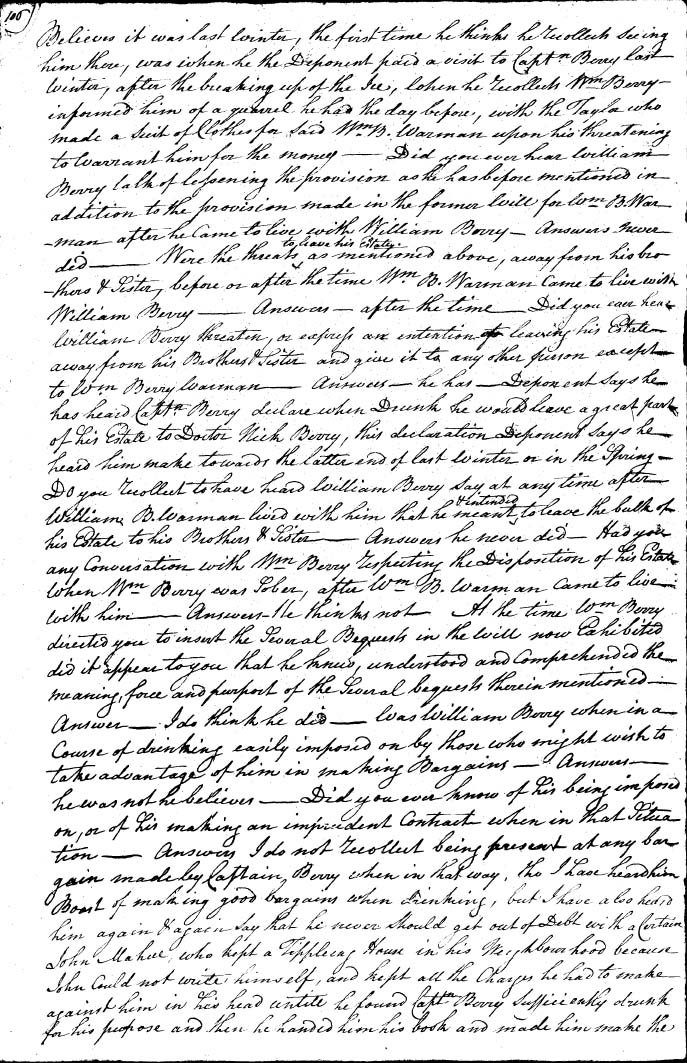 106
Believes it was last Winter, the first time he thinks he recollects seeing
him there, was when he the Deponent paid a visit to Captn Berry last
Winter, after the breaking up of the Ice, when he recollects Wm Berry
informed him of a quarrel he had the day before, with the Taylor who
made a Suit of Clothes for said Wm B. Warman upon his threatening
to Warrant him for the money — Did you ever hear William
Berry talk of lessening the provision as he has before mentioned in
addition to the provision made in the former Will for Wm B. War
-man after he Came to live with William Berry — Answers never
did — Were the threats to leave his Estate as mentioned above, away from his bro
-thers & Sister, before or after the time Wm B. Warman Came to live with
William Berry — Answers — after the time — Did you ever hear
William Berry threaten, or express an entention of leaving his Estate
away from his Brothers & Sister and give it to any other person except
to Wm Berry Warman — Answers — he has — Deponent says he
has heard Captn Berry declare when Drunk he would leave a great part
of his Estate to Doctor Nick Berry, this declaration Deponent says he
heard him make towards the latter end of last Winter or in the Spring —
Do you recollect to have heard William Berry say at any time after
William B. Warman lived with him that he meant & entended to leave the bulk of
his Estate to his Brothers & Sister — Answers he never did — Had you
any Conversation with Wm Berry respecting the Disposition of his Estate
When Wm Berry was Sober, after Wm B. Warman Came to live
with him — Answers — He thinks not — At the time Wm Berry
directed you to insert the Several Bequests in the Will now Exhibited
did it appear to you that he knew, understood and Comprehended the
meaning, force and purport of the Several bequests therein mentioned —
Answer — I do think he did — Was William Berry when in a
Course of drinking easily imposed on by those who might wish to
take advantage of him in making Bargains — Answers —
he was not he believes — Did you ever know of his being imposed
on, or of his making an imprudent Contract when in that Situa
tion — Answers I do not recollect being present at any bar
gain made by Captain Berry when in that way, tho I have heard him
Boast of making good bargains when drinking, but I have also heard
him again & again say that he never should get out of Debt with a Certain
John Mahue, who kept a Tippling House in his Neighbourhood because
John Could not write himself, and kept all the Charges he had to make
against him in his head untill he found Captn Berry sufficiently drunk
for his purpose and then he handed him his book and made him make the